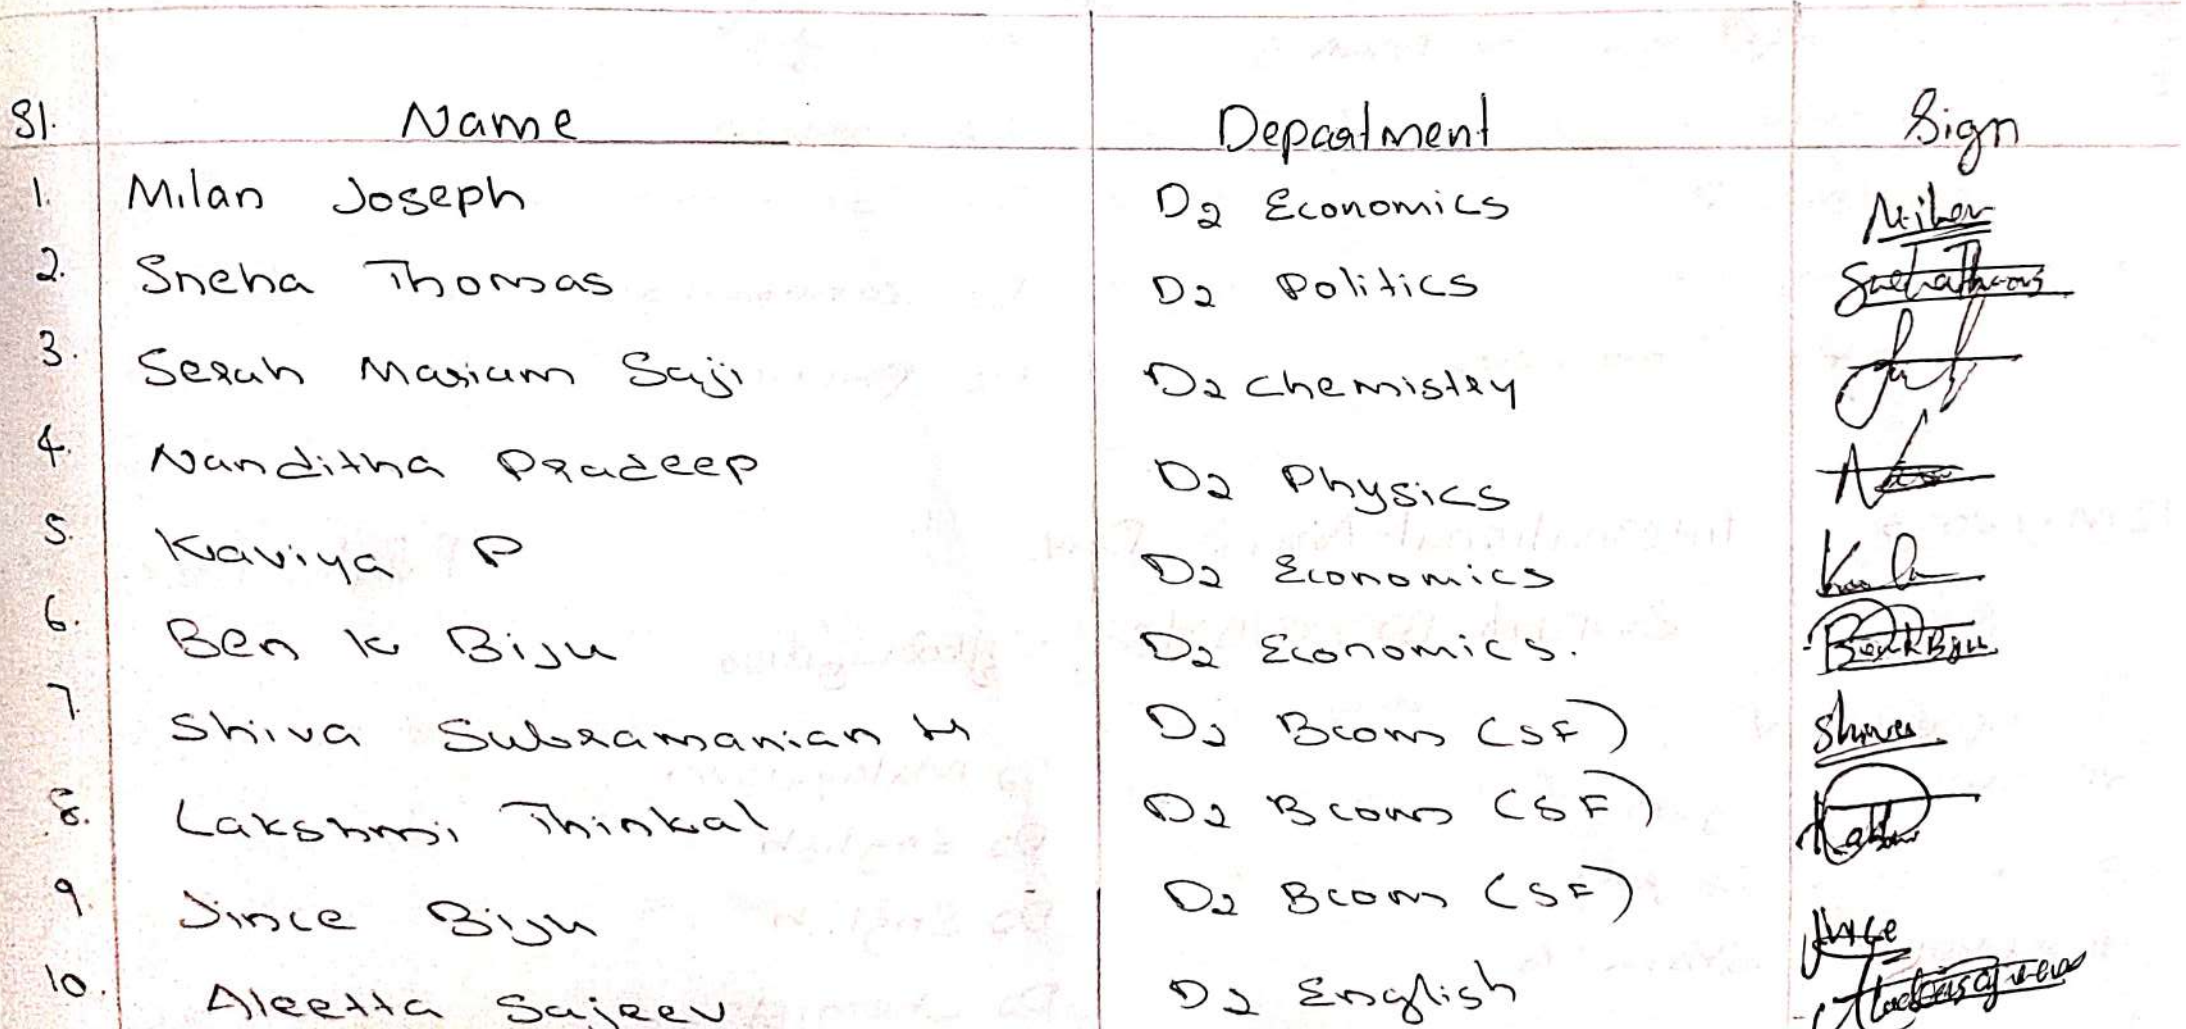 Sl. Name Department Sign
1. Milan Joseph D2 Economics Milan
2. Sneha Thomas D2 Politics Snehathomas
3. Serah Mariam Saji D2 Chemistry
4. Nanditha Pradeep D2 Physics
5. Kaviya P D2 Economics
6. Ben K Biju D2 Economics. Ben K Biju
7. Shiva Subramanian M D2 Bcom (SF) Shiva
8. Lakshmi Thinkal D2 Bcom (SF)
9. Jince Biju D2 Bcom (SF) Jince
10. Aleetta Sajeev D2 English